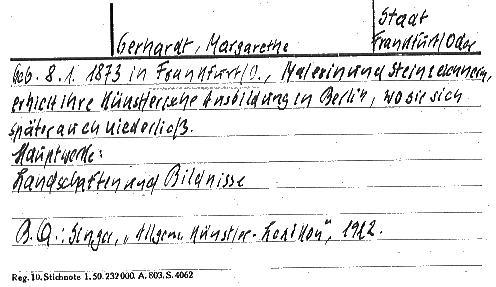 Stadt
Gerhardt, Margarethe Frankfurt/Oder
Geb. 8.1. 1873 in Frankfurt/O., Malerin und Steinzeichnerin,
erhielt ihre künstlerische Ausbildung in Berlin, wo sie sich
später auch niederließ.
Hauptwerke:
Landschaften und Bildnisse
B.Q.: Singer, „Allgem. Künstler-Lexikon", 1922.
Reg. 10. Stichnote 1. 50. 232000. A. 803. S. 4062